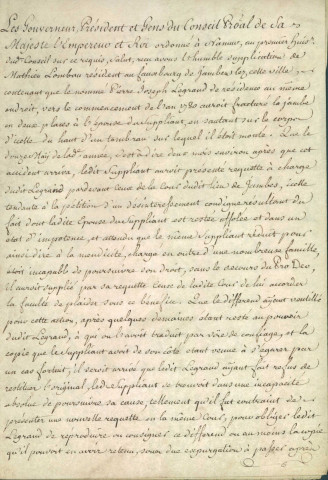 Les Gouverneur, President et Gens du Conseil Roial de Sa
Majesté l'Empereur et Roi ordonné à Namur, au premier huis.r
dud.t Conseil sur ce requis, salut, reçu avons l'humble supplication de
Mathieu résident au fauxbourg de Jambes lez cette ville
contenant que le nommé Pierre Joseph Legrand de résidence au même
endroit, vers le commencement de l'an 1780 auroit fracturé la jambe
en deux places à l'épouse du suppliant, en sautant sur le corps
d'icelle du haut d'un sur lequel il étoit monté. Que le
douze May de lad.e année, c'est à dire deux mois environ après que cet
accident arriva, ledit Suppliant auroit présenté requette à charge
dudit Legrand pardevant ceux de la Cour dudit lieu de Jambes, icelle
tendante à la petition d'un désintéressement condigne résultant du
fait dont ladite Epouse du Suppliant est restée et dans un
état d'impotence, et attendu que le même Suppliant réduit pour
ainsi dire à la mendicité, chargé en outre d'une nombreuse famille,
étoit incapable de poursuivre son droit, sans le secours du Pro Deo,
il auroit supplié par sa requette Ceux de ladite Cour de lui accorder
la faculté de plaider sous ce benefice. Que le different ajant
pour cette action, après quelques semaines étant resté au pouvoir
dudit Legrand, à qui on l'avoit traduit par voie de confiage, et la
copie que le Suppliant avoit de son côté étant venue à s'égarer par
un cas fortuit, il seroit arrivé que ledit Legrand ajant fait refus de
restituer l'original, ledit Suppliant se trouvoit dans une incapacité
absolue de poursuivre sa cause, tellement qu'il fut contraint de
présenter une nouvelle requette à la même Cour, pour obliger ledit
Legrand de reproduire ou consigner ce different ou au moins la copie
qu'il pouvoit en avoir retenu, sous due expurgation à passer après